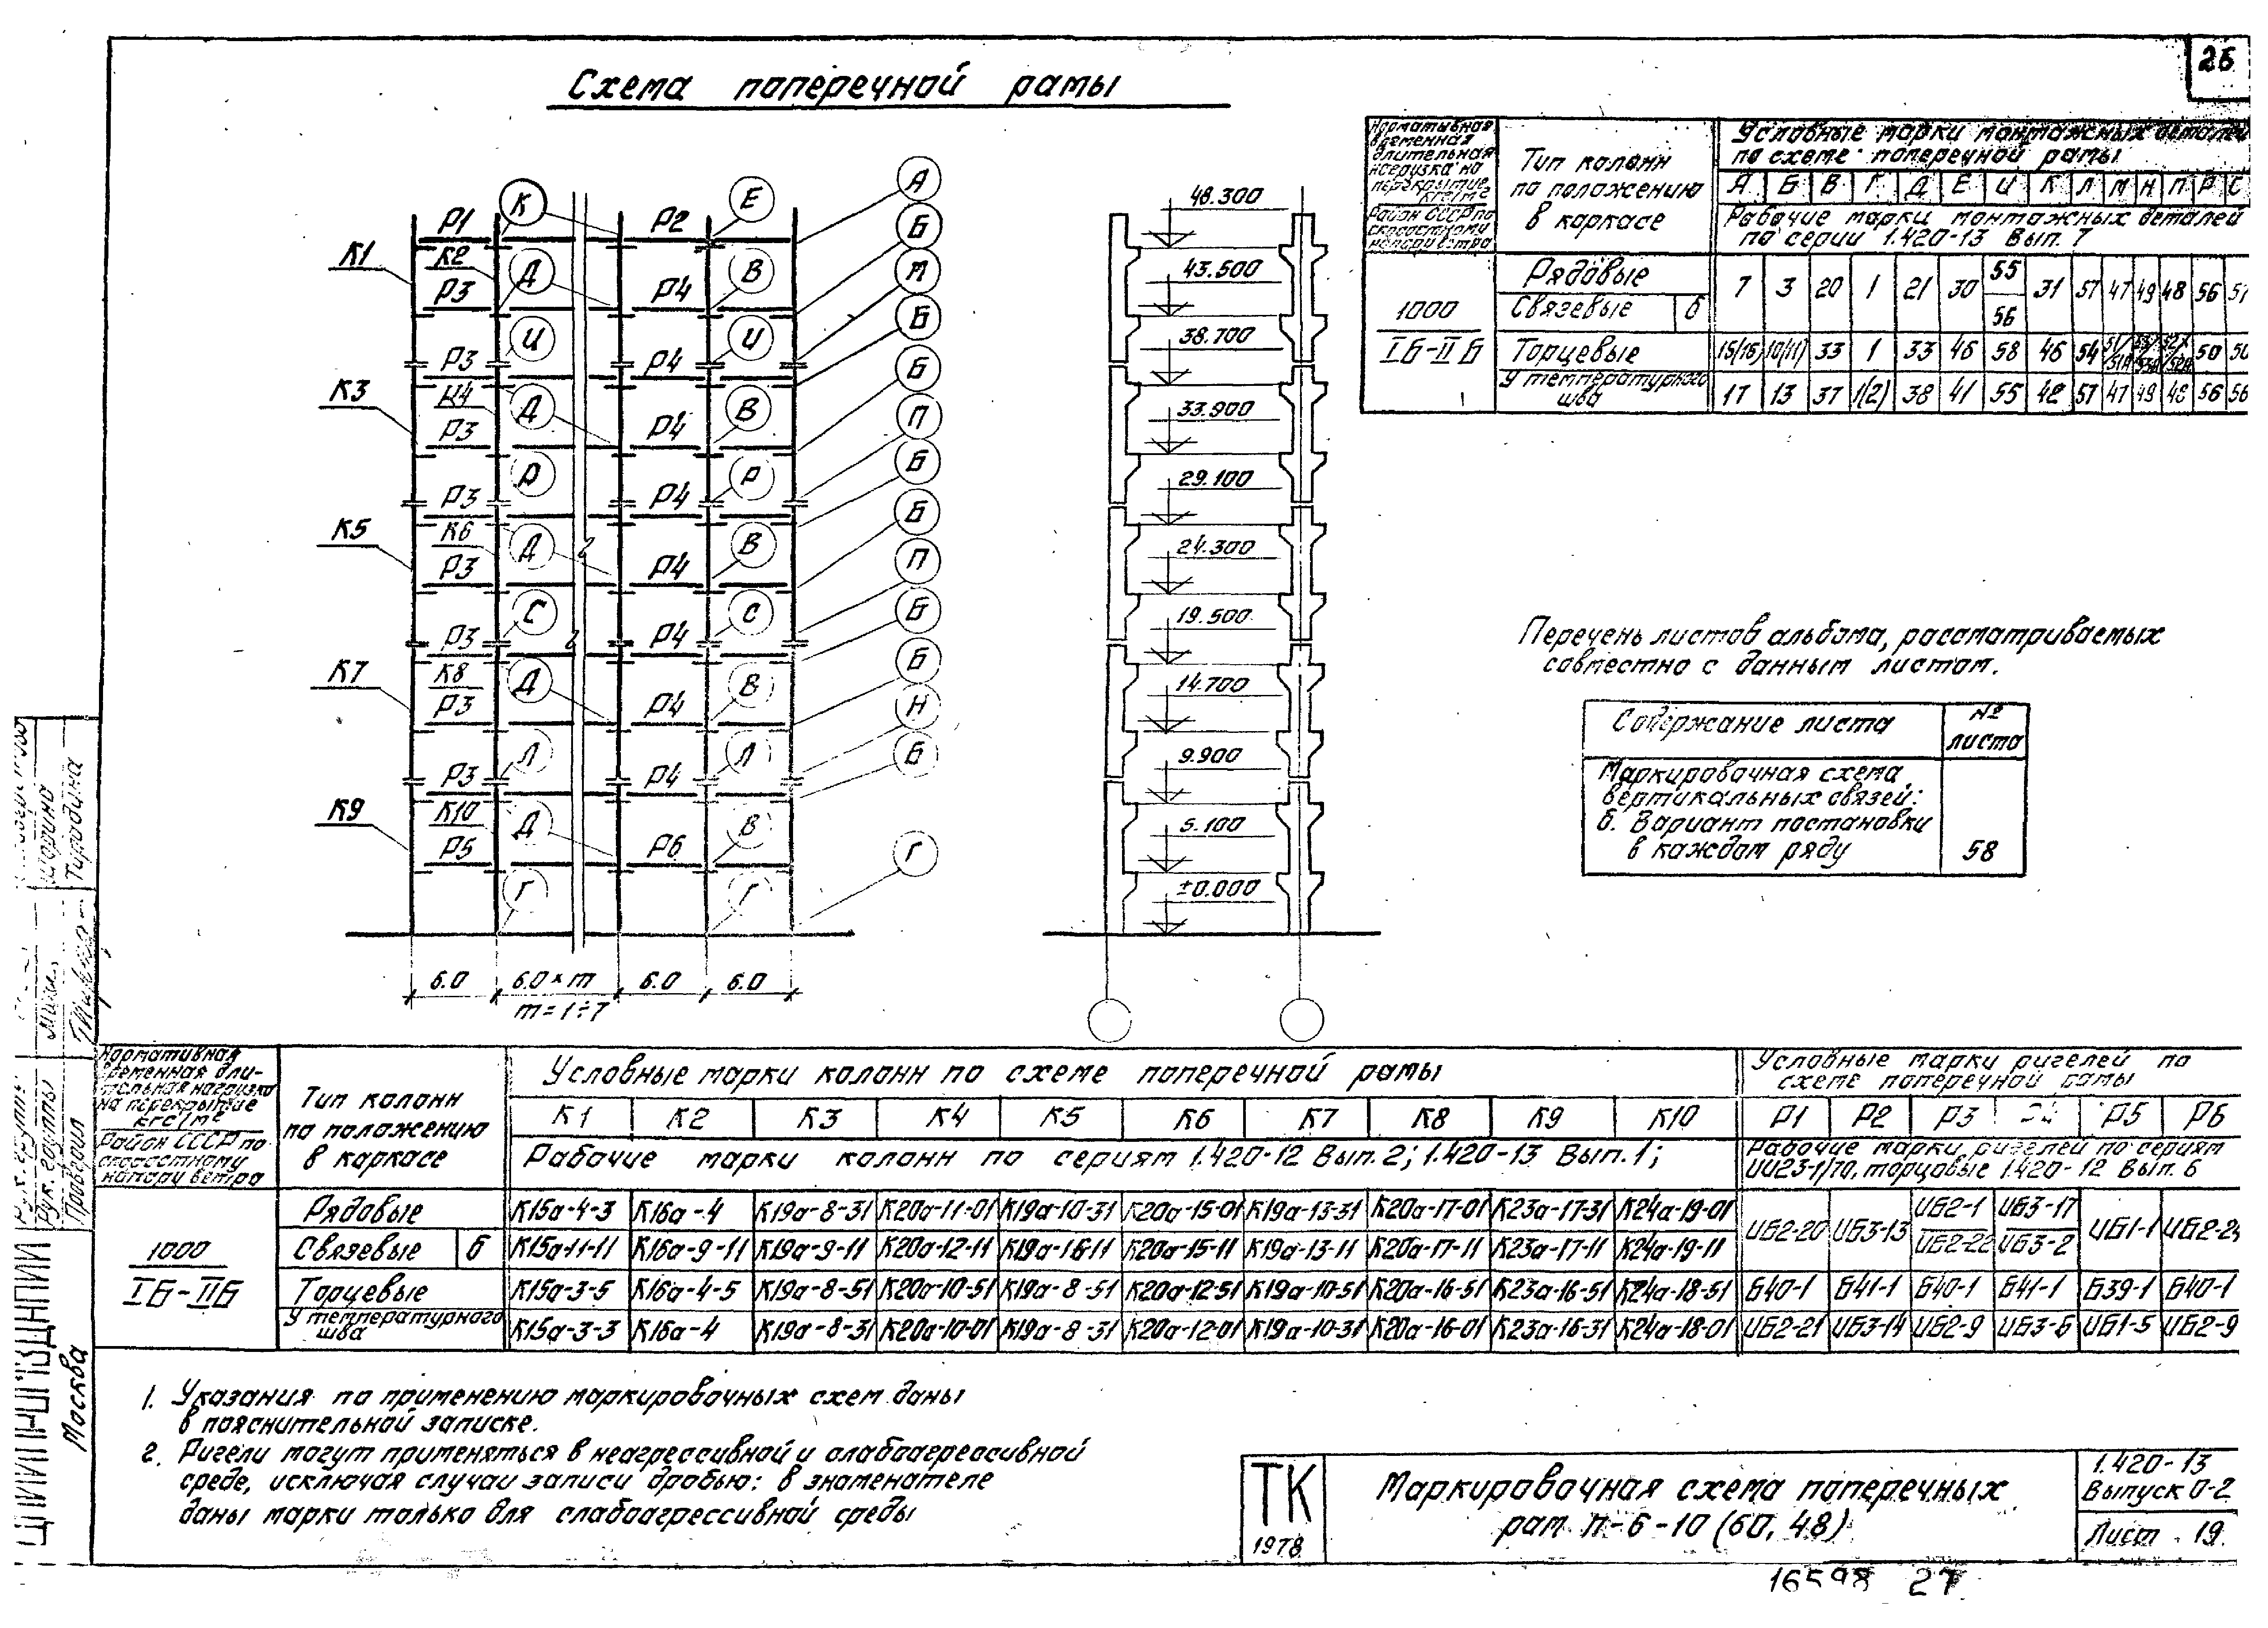 26
Схема поперечной рамы
К Е А
Р1 Р2 Б
К1 К2 Д В М
Р3 Р4 Б
И И
Р3 Р4 Б
К3 К4 Д В П
Р3 Р4 Б
Р Р
Р3 Р4 Б
К5 К6 Д В П
Р3 Р4 Б
С С
Р3 Р4 Б
К7 К8 Д В Н
Р3 Р4 Б
Л Л
Р3 Р4
К9 К10 Д В
Р5 Р6 Г
Г Г
6.0 6.0×m 6.0 6.0
m=1÷7
48.300
43.500
38.700
33.900
29.100
24.300
19.500
14.700
9.900
5.100
±0.000
Нормативная временная длительная нагрузка на перекрытие кгс/м²
Район СССР по скоростному напору ветра
Тип колонн по положению в каркасе
Условные марки монтажных деталей
по схеме поперечной рамы
А Б В Г Д Е И К Л М Н П Р С
Рабочие марки монтажных деталей
по серии 1.420-13 Вып. 7
1000
IБ-IIБ
Рядовые 7 3 20 1 21 30 55 31 57 47 49 48 56 57
Связевые б 56
Торцевые 15(16) 10(11) 33 1 33 46 58 46 54 50 50
У температурного шва 17 13 37 1(2) 38 41 55 42 57 47 49 48 56 56
Перечень листов альбома, рассматриваемых
совместно с данным листом.
Содержание листа № листа
Маркировочная схема
вертикальных связей:
б. Вариант постановки
в каждом ряду 58
Нормативная временная длительная нагрузка на перекрытие кгс/м²
Район СССР по скоростному напору ветра
Тип колонн по положению в каркасе
Условные марки колонн по схеме поперечной рамы
Условные марки ригелей по
схеме поперечной рамы
К1 К2 К3 К4 К5 К6 К7 К8 К9 К10 Р1 Р2 Р3 Р4 Р5 Р6
Рабочие марки колонн по сериям 1.420-12 Вып. 2; 1.420-13 Вып. 1;
Рабочие марки ригелей по сериям
ИИ23-1/70, торцовые 1.420-12 Вып. 6
1000
IБ-IIБ
Рядовые К15а-4-3 К16а-4 К19а-8-31 К20а-11-01 К19а-10-31 К20а-15-01 К19а-13-31 К20а-17-01 К23а-17-31 К24а-19-01 ИБ2-20 ИБ3-13 ИБ2-1 ИБ3-17 ИБ1-1 ИБ2-24
Связевые б К15а-11-11 К16а-9-11 К19а-9-11 К20а-12-11 К19а-16-11 К20а-15-11 К19а-13-11 К20а-17-11 К23а-17-11 К24а-19-11 ИБ2-22 ИБ3-2
Торцевые К15а-3-5 К16а-4-5 К19а-8-51 К20а-10-51 К19а-8-51 К20а-12-51 К19а-10-51 К20а-16-51 К23а-16-51 К24а-18-51 Б40-1 Б41-1 Б40-1 Б41-1 Б39-1 Б40-1
У температурного шва К15а-3-3 К16а-4 К19а-8-31 К20а-10-01 К19а-8-31 К20а-12-01 К19а-10-31 К20а-16-01 К23а-16-31 К24а-18-01 ИБ2-21 ИБ3-14 ИБ2-9 ИБ3-6 ИБ1-5 ИБ2-9
1. Указания по применению маркировочных схем даны
в пояснительной записке.
2. Ригели могут применяться в неагрессивной и слабоагрессивной
среде, исключая случаи записи дробью: в знаменателе
даны марки только для слабоагрессивной среды
ТК
1978
Маркировочная схема поперечных
рам п-6-10 (60, 48)
1.420-13
Выпуск 0-2
Лист 19
16598 27
Рук. группы
Проверил
Шорина
Москва